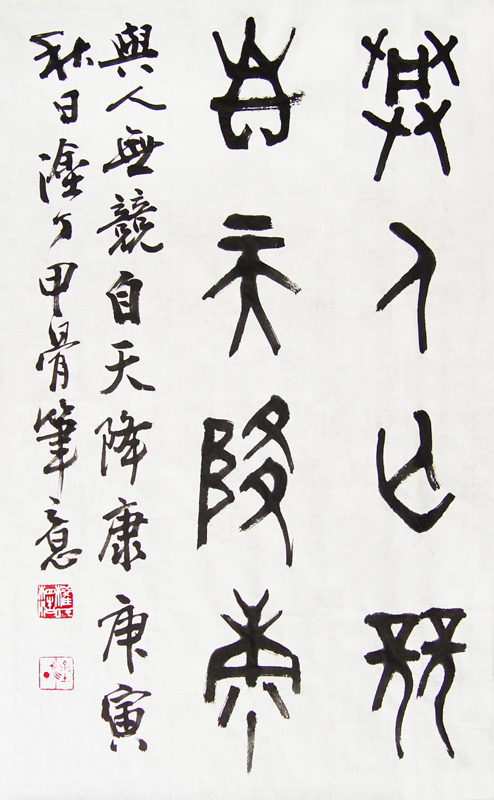 與人亡競
自天降康
與人無競自天降康 庚寅
秋日 甲骨筆意